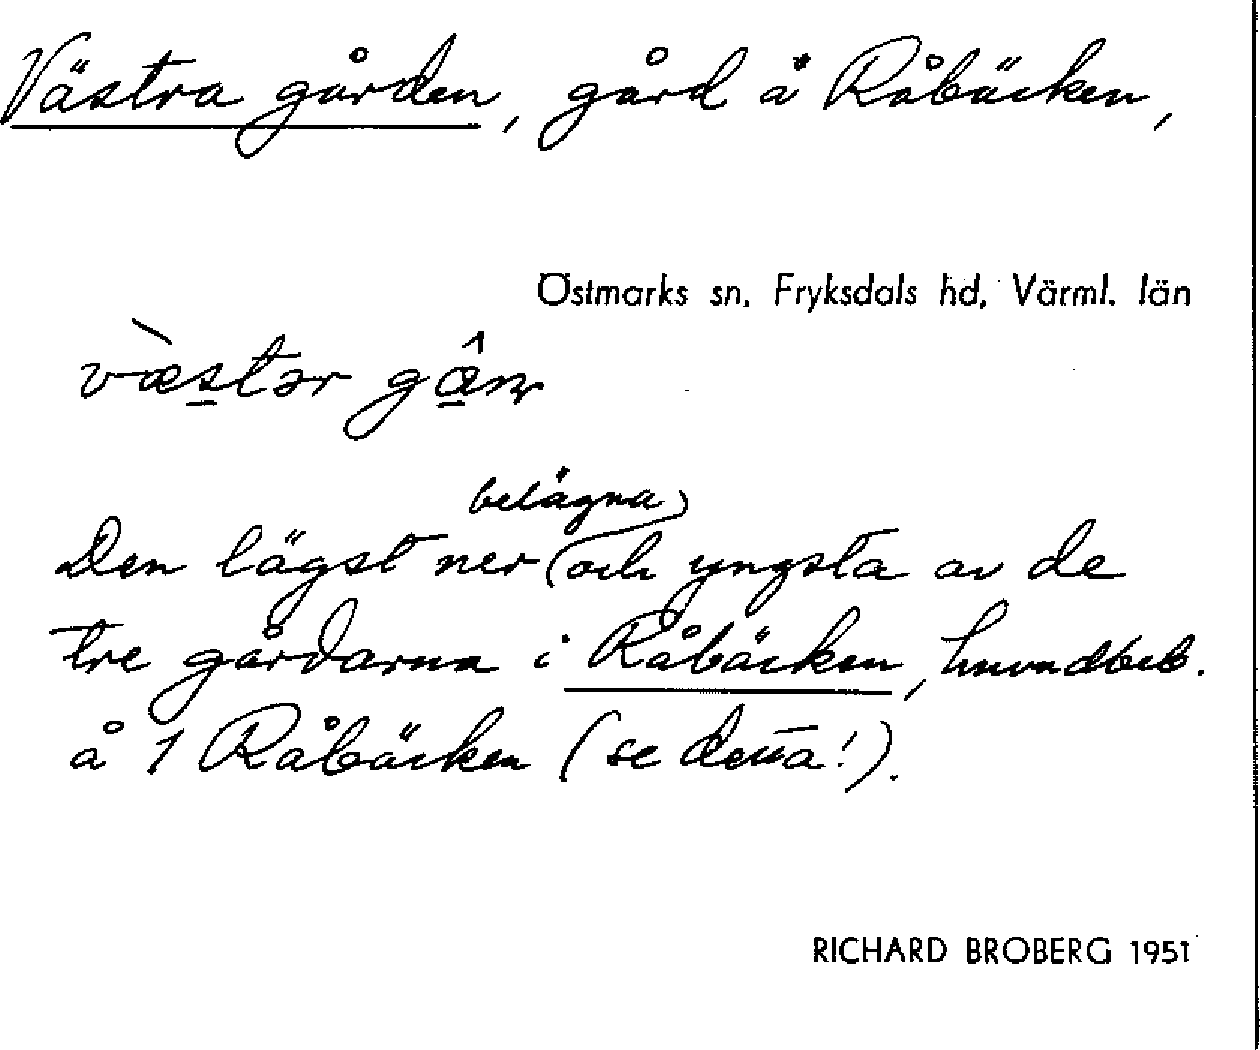 Västra gården, gård å Råbäcken,
Östmarks sn, Fryksdals hd, Värml. län
væ̀stər gâ̠n
Den lägst ner belägna och yngsta av de
tre gårdarna i Råbäcken, huvudbeb.
å 1 Råbäcken (se detta!).
RICHARD BROBERG 1951